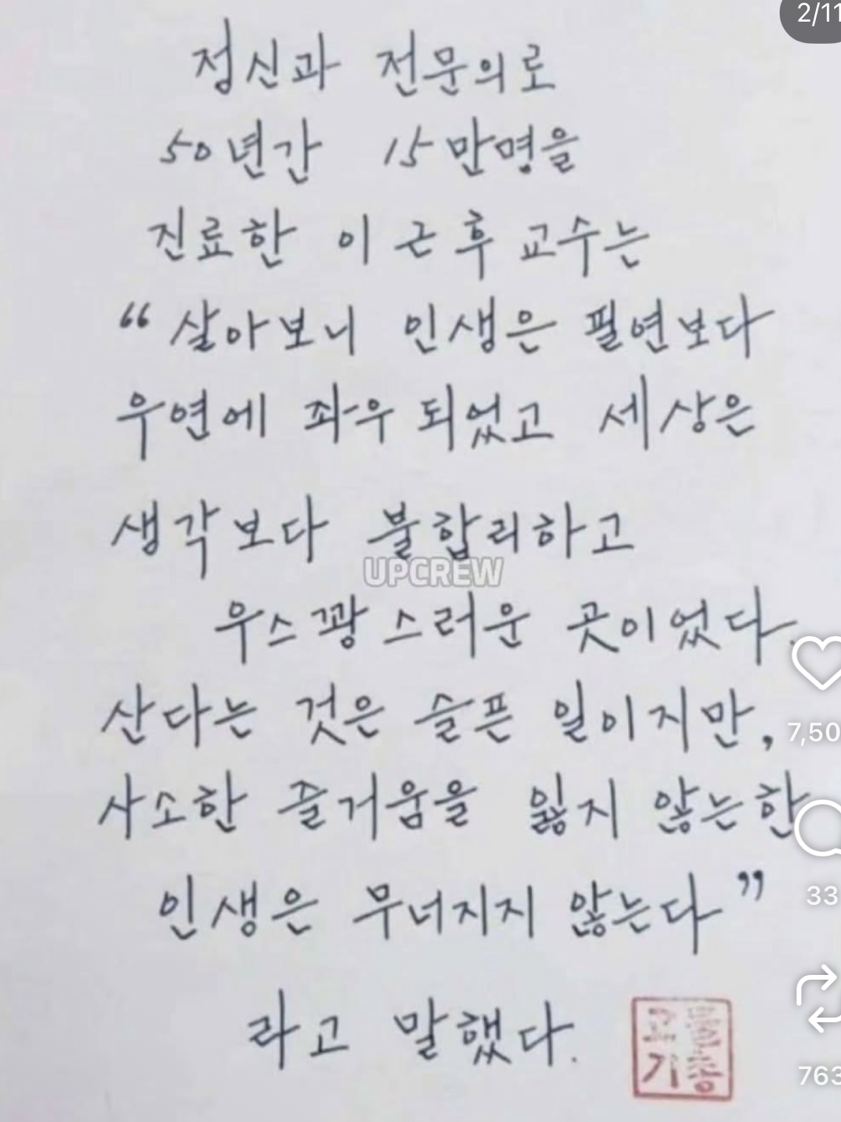 2/11
정신과 전문의로
50년간 15만명을
진료한 이근후 교수는
“살아보니 인생은 필연보다
우연에 좌우 되었고 세상은
생각보다 불합리하고
UPCREW
우스꽝스러운 곳이었다.
산다는 것은 슬픈 일이지만,
7,50
사소한 즐거움을 잃지 않는한
33
인생은 무너지지 않는다”
라고 말했다.
763